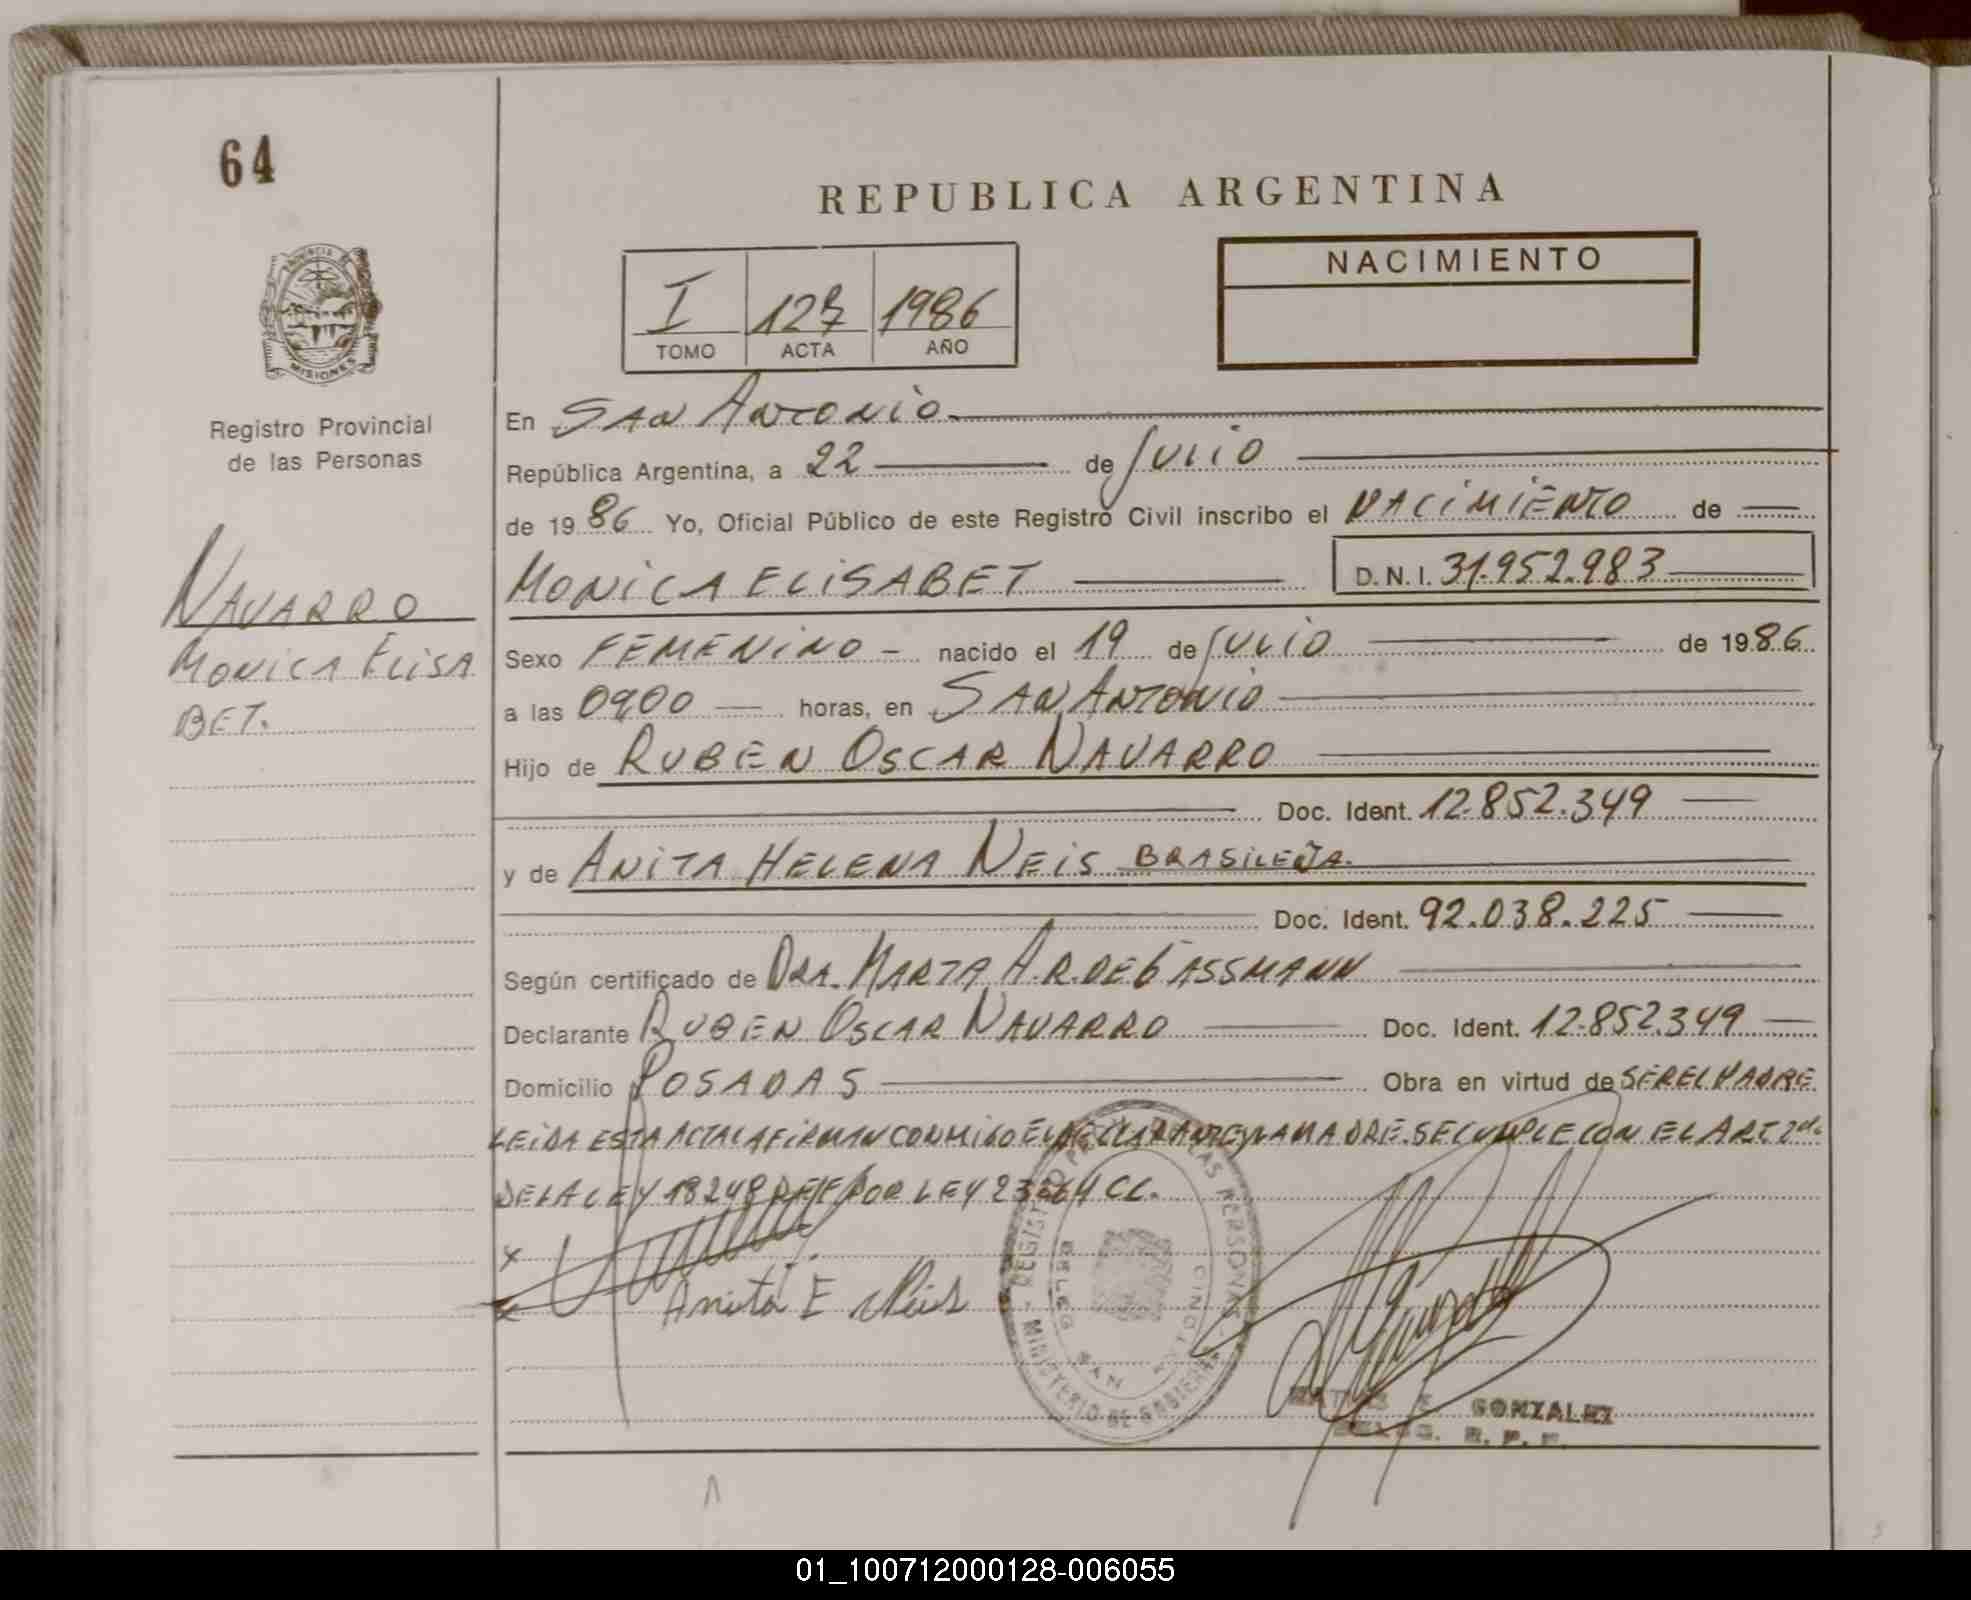 64
REPUBLICA ARGENTINA
NACIMIENTO
I 127 1986
TOMO ACTA AÑO
PROVINCIA DE
MISIONES
Registro Provincial
de las Personas
NAVARRO
MONICA ELISA
BET.
En SAN ANTONIO
República Argentina, a 22 de JULIO
de 1986 Yo, Oficial Público de este Registro Civil inscribo el NACIMIENTO de
MONICA ELISABET D.N.I. 31.952.983
Sexo FEMENINO - nacido el 19 de JULIO de 1986
a las 0900 horas, en SAN ANTONIO
Hijo de RUBEN OSCAR NAVARRO
Doc. Ident. 12.852.349
y de ANITA HELENA NEIS BRASILEÑA.
Doc. Ident. 92.038.225
Según certificado de DRA. MARTA A.R. DE GASSMANN
Declarante RUBEN OSCAR NAVARRO Doc. Ident. 12.852.349
Domicilio POSADAS Obra en virtud de SER EL PADRE
LEIDA ESTA ACTA LA FIRMAN CONMIGO EL DECLARANTE Y LA MADRE. SE CUMPLE CON EL ART 2do
DE LA LEY 18248 POR LEY 23264 CC.
x
x Anita E Neis
REGISTRO PROVINCIAL DE LAS PERSONAS - MINISTERIO DE GOBIERNO -
DELEG SAN ANTONIO
GONZALEZ
01_100712000128-006055